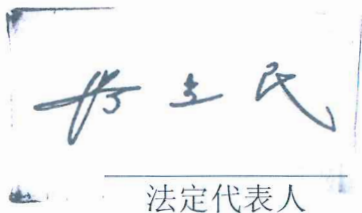 立民
法定代表人